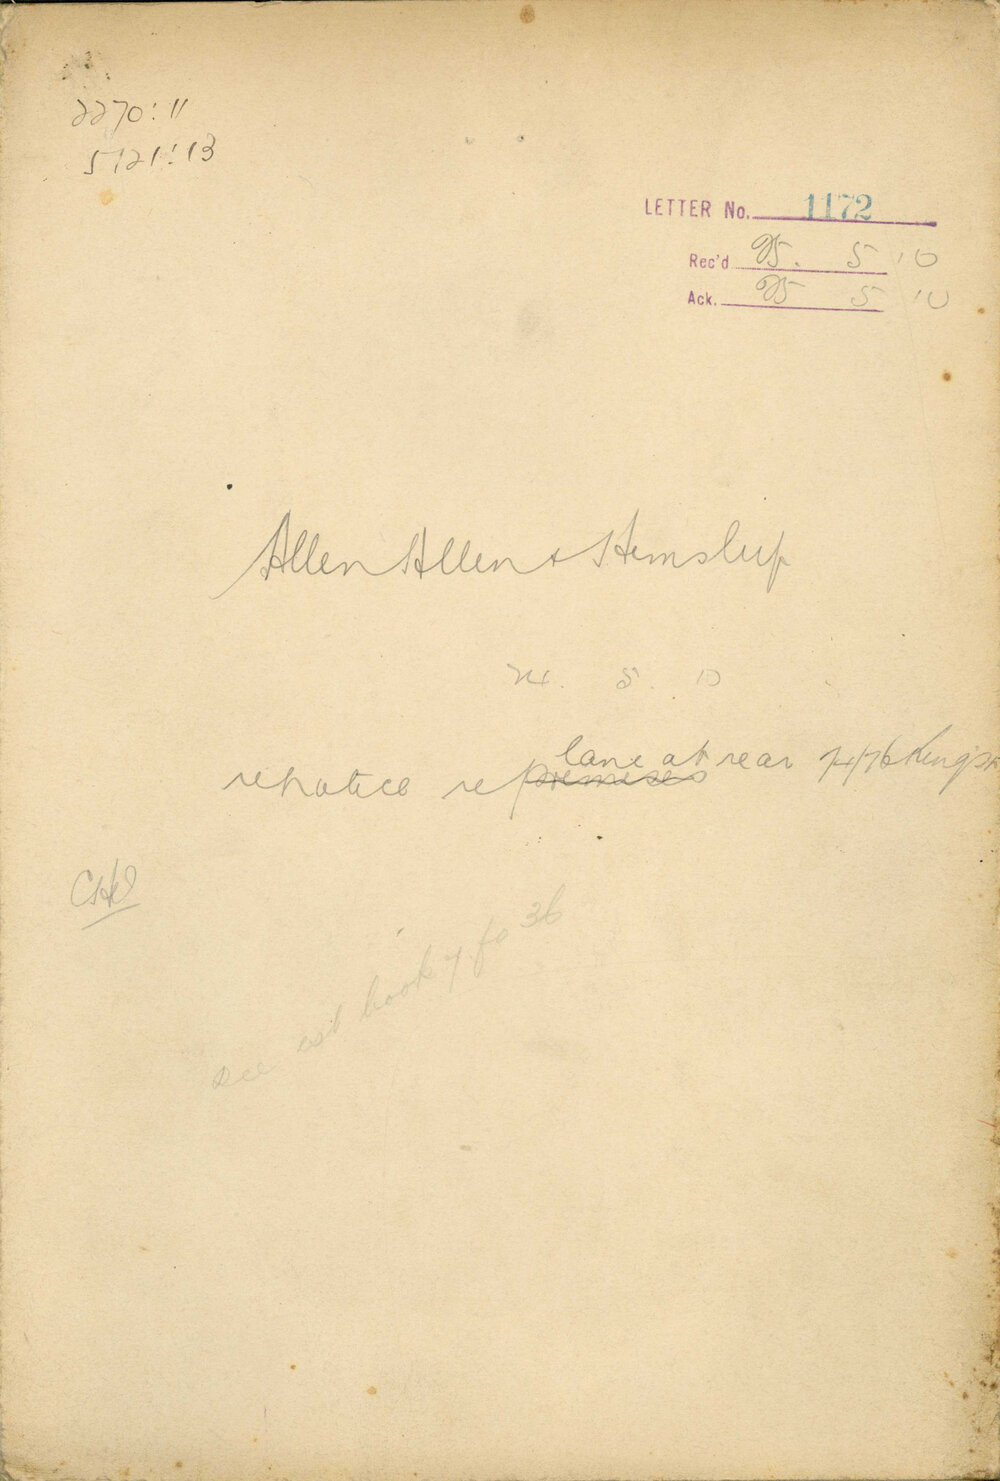 2270:11
5121:13
LETTER No. 1172
Rec'd 25. 5 '10
Ack. 25 5 '10
Allen Allen & Hemsley
24. 5. 10
lane at rear 74/76 King St
re notice re premises
see est book 7 fo 36